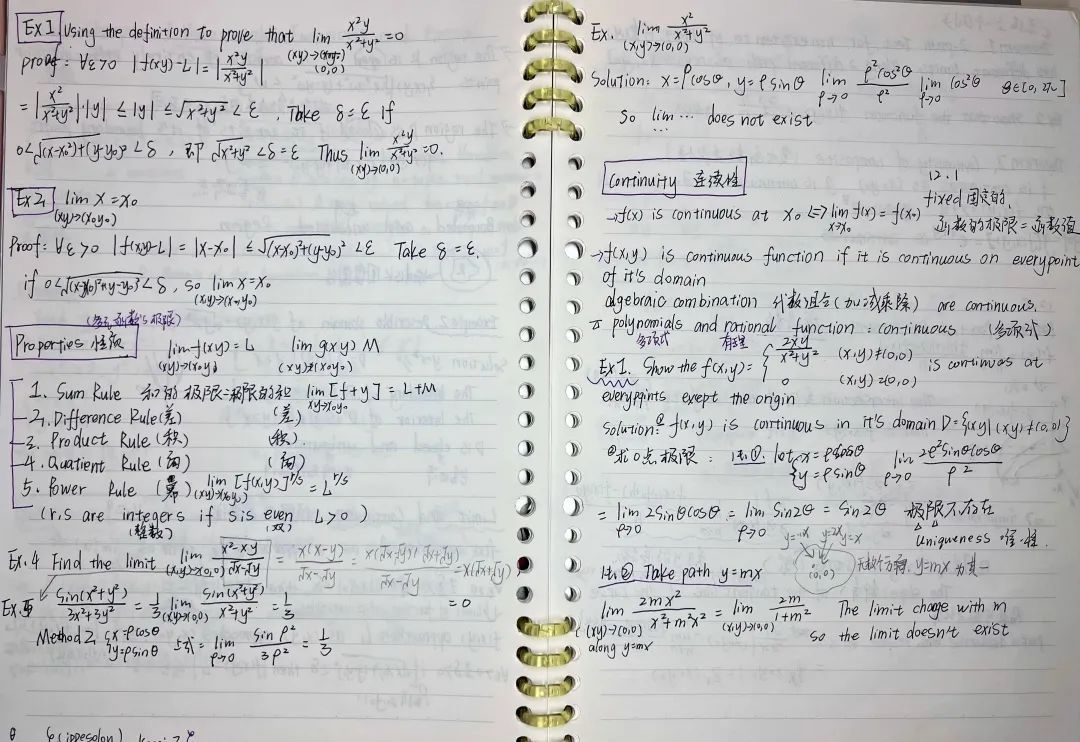 Ex1. Using the definition to prove that lim (x,y)→(0,0) x²y/(x²+y²) = 0
proof: ∀ε>0 |f(x,y)-L| = |x²y/(x²+y²)|
= |x²/(x²+y²)|·|y| ≤ |y| ≤ √(x²+y²) < ε. Take δ=ε if
0<√((x-x₀)²+(y-y₀)²) <δ, 即 √(x²+y²) <δ=ε Thus lim (x,y)→(0,0) x²y/(x²+y²) =0.
Ex2. lim (x,y)→(x₀,y₀) x = x₀
Proof: ∀ε>0 |f(x,y)-L| = |x-x₀| ≤ √((x-x₀)²+(y-y₀)²) <ε Take δ=ε.
if 0<√((x-x₀)²+(y-y₀)²) <δ, so lim (x,y)→(x₀,y₀) x=x₀
(多元函数's极限)
Properties 性质 lim (x,y)→(x₀,y₀) f(x,y) = L lim (x,y)→(x₀,y₀) g(x,y) M
1. Sum Rule 和的极限=极限的和 lim xy→x₀y₀ [f+y] = L+M
2. Difference Rule (差) (差)
3. Product Rule (积) (积).
4. Quatient Rule (商) (商)
5. Power Rule (幂) lim (x,y)→(x₀,y₀) [f(x,y)]^r/s = L^r/s
(r,s are integers if s is even L>0)
(整数) (双)
Ex.4 Find the limit lim (x,y)→(0,0) (x²-xy)/(√x-√y) = x(x-y)/(√x-√y) = x(√x-√y)(√x+√y)/(√x-√y) = x(√x+√y)
= 0
Ex.5 sin(x²+y²)/(3x²+3y²) = 1/3 lim (x,y)→(0,0) sin(x²+y²)/(x²+y²) = 1/3
Method 2. {x=ρcosθ y=ρsinθ 上式 = lim ρ→0 sinρ²/3ρ² = 1/3
Ex. lim (x,y)→(0,0) x²/(x²+y²)
Solution: x=ρcosθ, y=ρsinθ lim ρ→0 ρ²cos²θ/ρ² lim ρ→0 cos²θ θ∈[0,2π]
So lim... does not exist
Continuity 连续性
12.1
fixed 固定的.
→f(x) is continuous at x₀ ⟺ lim x→x₀ f(x) = f(x₀) 函数的极限=函数值
→f(x,y) is continuous function if it is continuous on everypoint
of it's domain
algebraic combination 代数混合(加减乘除) are continuous.
polynomials and rational function: continuous (多项式)
多项式 有理
Ex1. Show the f(x,y) = { 2xy/(x²+y²) (x,y)≠(0,0) is continuos at
0 (x,y)=(0,0)
everyppints exept the origin
Solution: ① f(x,y) is continuous in it's domain D={xy|(xy)≠(0,0)}
②求0点极限: 法①. let {x=ρcosθ y=ρsinθ lim ρ→0 2ρ²sinθcosθ/ρ²
= lim ρ→0 2sinθcosθ = lim ρ→0 sin2θ = sin2θ 极限不存在
Uniqueness 唯一性.
y=2x y=x
(0,0)
y=mx 为其一
法② Take path y=mx
lim (x,y)→(0,0) along y=mx 2mx²/(x²+m²x²) = lim (x,y)→(0,0) 2m/(1+m²) The limit chage with m
so the limit doesn't exist